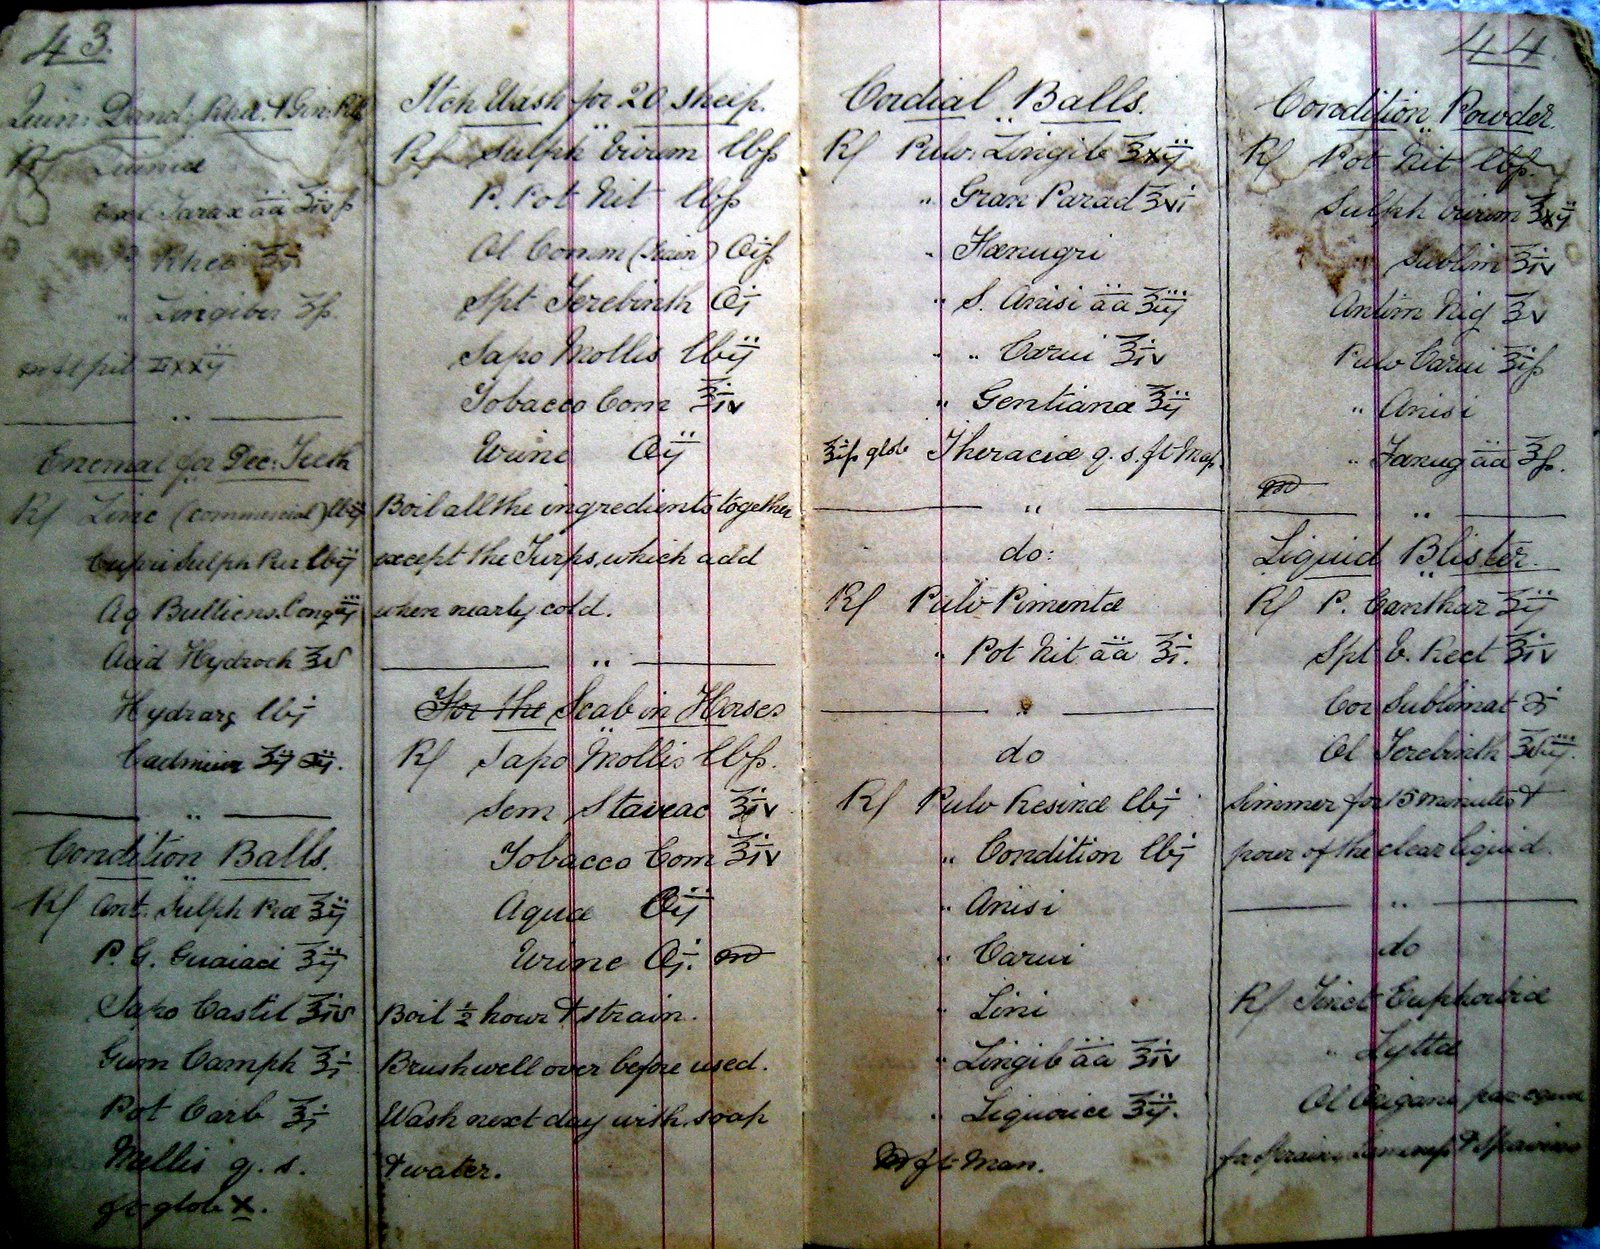 43.
Quin: Dand: Rhd. & Gin: Pill
Rf Quiniæ
Ext Tarax āā ʒivſs
P Rhei ʒi
" Zingiber ʒſs.
ft pil xxij
"
Enemal for Dec: Teeth
Rf Zinc (commercial) lbij
Cupri Sulph Pur lbij
Aq Bulliens. Cong iij
Acid Hydroch ℥v
Hydrarg lbj
Cadmium
"
Condition Balls.
Rf Ant. Sulph Præ ℥ij
P. G. Guaiaci ℥ij
Sapo Castil ℥iv
Gum Camph ℥j
Pot Carb ℥j
Mellis q. s.
ft glob x.
Itch Wash for 20 sheep.
Rf Sulph Vivum lbſs
P. Pot Nit lbſs
Ol Comm (Train) Oiſs
Spt Terebinth Oj
Sapo Mollis lbij
Tobacco Com ℥iv
Urine Oij
Boil all the ingredients together
except the Turps, which add
when nearly cold.
"
For the Scab in Horses
Rf Sapo Mollis lbſs.
Sem Staveac ℥iv
Tobacco Com ℥iv
Aquæ Oij
Urine Oj. m
Boil ½ hour & strain.
Brush well over before used.
Wash next day with soap
& water.
44.
Cordial Balls.
Rf Pulv. Zingib ℥xij
" Gran Parad ℥vi
" Fœnugri
" S. Anisi āā ℥iij
" " Carui ℥iv
" Gentianæ ℥ij
℥iſs glob Theraciæ q. s. ft Maſs.
"
do:
Rf Pulv Pimentæ
" Pot Nit āā ℥i.
"
do
Rf Pulv Resinæ lbj
" Condition lbj
" Anisi
" Carui
" Lini
" Zingib āā ℥iv
" Liquorice ℥ij.
m ft Man.
Condition Powder.
Rf Pot Nit lbſs.
Sulph Vivum ℥xij
Sublim ℥iv
Antim Nig ℥v
Pulv Carui ℥iſs
" Anisi
" Fœnug āā ℥ſs.
m
"
Liquid Blister.
Rf P. Canthar ℥ij
Spt V. Rect ℥iv
Cor Sublimat ʒj
Ol Terebinth ℥viij.
Simmer for 15 minutes &
pour of the clear liquid.
"
do
Rf Tinct Euphorbiæ
" Lyttæ
Ol Origani par
for Strains Lameneſs & Spavins